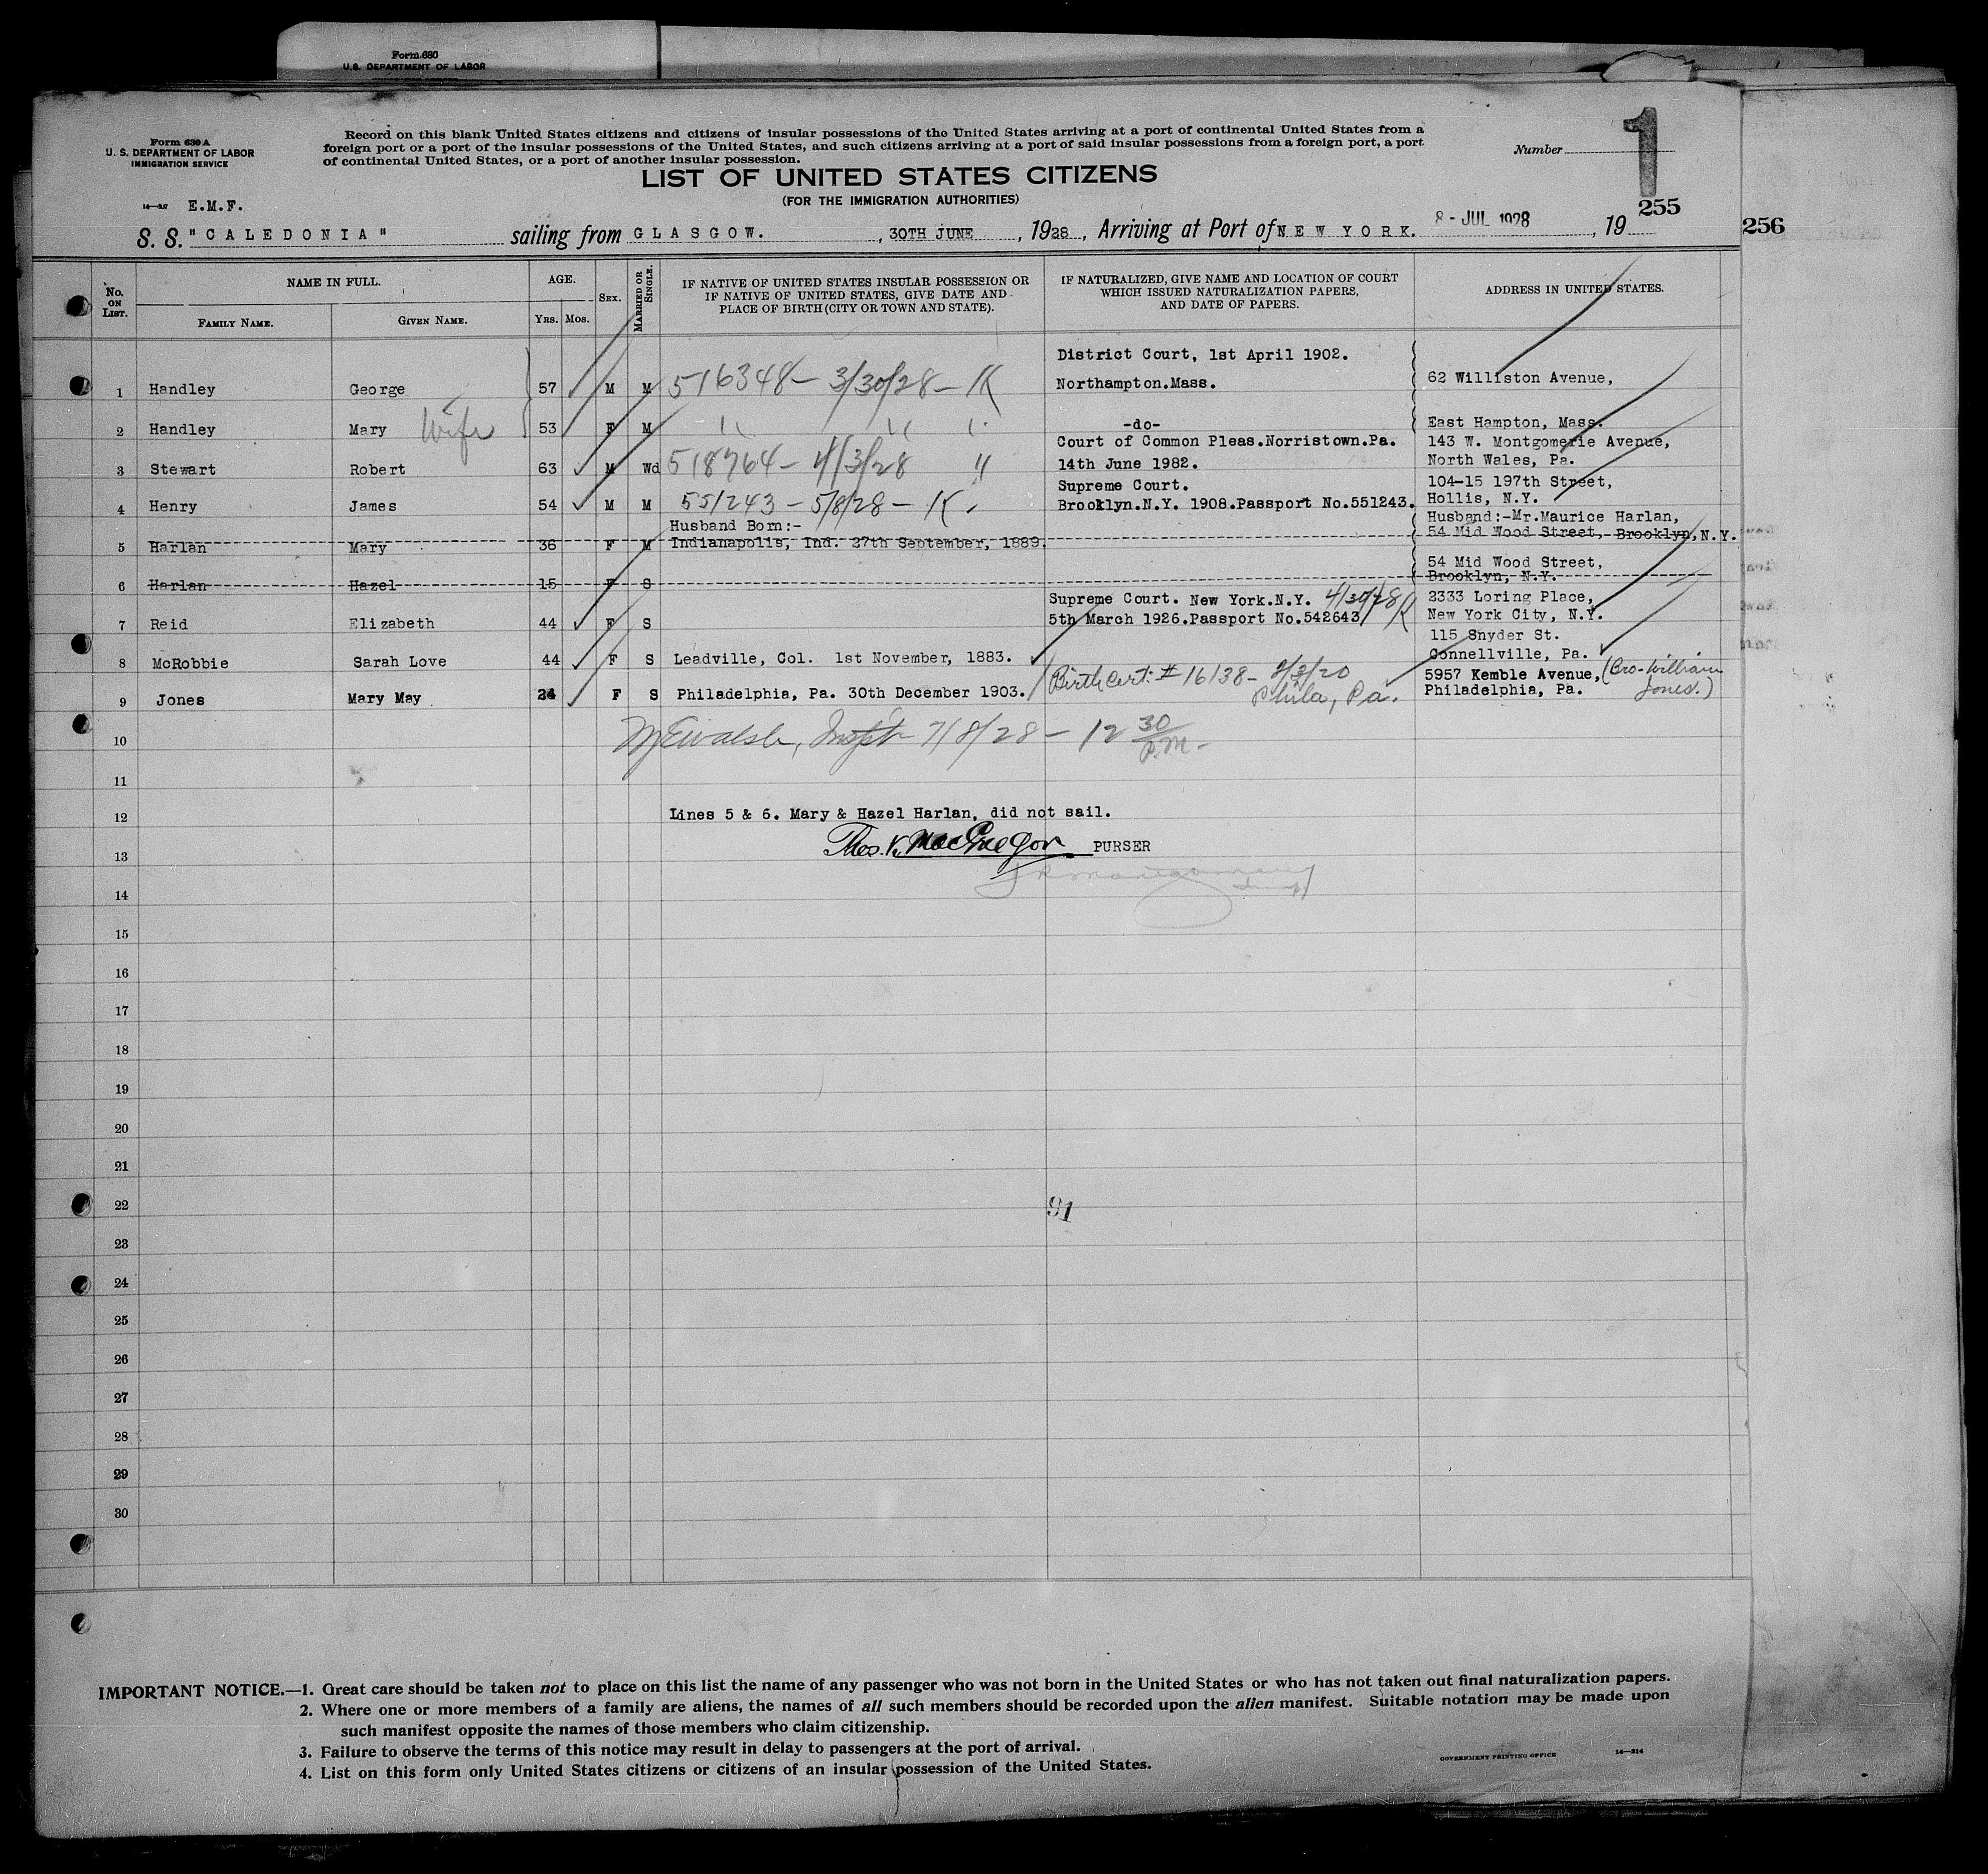 Form 630
U.S. DEPARTMENT OF LABOR
Form 630 A
U. S. DEPARTMENT OF LABOR
IMMIGRATION SERVICE
Record on this blank United States citizens and citizens of insular possessions of the United States arriving at a port of continental United States from a
foreign port or a port of the insular possessions of the United States, and such citizens arriving at a port of said insular possessions from a foreign port, a port
of continental United States, or a port of another insular possession.
Number 1
LIST OF UNITED STATES CITIZENS
(FOR THE IMMIGRATION AUTHORITIES)
E.M.F.
255
256
S. S. "CALEDONIA" sailing from GLASGOW. , 30TH JUNE , 1928 , Arriving at Port of NEW YORK. 8 - JUL 1928 , 19
No. ON LIST. NAME IN FULL. AGE. SEX. MARRIED OR SINGLE. IF NATIVE OF UNITED STATES INSULAR POSSESSION OR IF NATIVE OF UNITED STATES, GIVE DATE AND PLACE OF BIRTH (CITY OR TOWN AND STATE). IF NATURALIZED, GIVE NAME AND LOCATION OF COURT WHICH ISSUED NATURALIZATION PAPERS, AND DATE OF PAPERS. ADDRESS IN UNITED STATES.
FAMILY NAME. GIVEN NAME. YRS. MOS.
District Court, 1st April 1902.
1 Handley George 57 M M 516348 - 3/30/28 - K Northampton.Mass. 62 Williston Avenue,
2 Handley Mary Wife 53 F M " " " -do- East Hampton, Mass.
Court of Common Pleas.Norristown.Pa. 143 W. Montgomerie Avenue,
3 Stewart Robert 63 M Wd 518764 - 4/3/28 " 14th June 1982. North Wales, Pa.
Supreme Court. 104-15 197th Street,
4 Henry James 54 M M 551243 - 5/8/28 - K. Brooklyn.N.Y. 1908.Passport No.551243. Hollis, N.Y.
Husband Born:- Husband:-Mr.Maurice Harlan,
5 Harlan Mary 36 F M Indianapolis, Ind. 27th September, 1889. 54 Mid Wood Street, Brooklyn,N.Y.
54 Mid Wood Street,
6 Harlan Hazel 15 F S Brooklyn, N.Y.
Supreme Court. New York.N.Y. 4/30/28 K 2333 Loring Place,
7 Reid Elizabeth 44 F S 5th March 1926.Passport No.542643 New York City, N.Y.
115 Snyder St.
8 McRobbie Sarah Love 44 F S Leadville, Col. 1st November, 1883. Connellville, Pa.
Birth Cert: # 16138 - Phila, Pa. 5957 Kemble Avenue, (Bro-William Jones.)
9 Jones Mary May 24 F S Philadelphia, Pa. 30th December 1903. Philadelphia, Pa.
10 Walsh, Inspt 7/8/28 - 12 30 P.M.
11
12 Lines 5 & 6. Mary & Hazel Harlan, did not sail.
13 Thos. K. MacGregor PURSER
14
15
16
17
18
19
20
21
22 91
23
24
25
26
27
28
29
30
IMPORTANT NOTICE.—1. Great care should be taken not to place on this list the name of any passenger who was not born in the United States or who has not taken out final naturalization papers.
2. Where one or more members of a family are aliens, the names of all such members should be recorded upon the alien manifest. Suitable notation may be made upon
such manifest opposite the names of those members who claim citizenship.
3. Failure to observe the terms of this notice may result in delay to passengers at the port of arrival.
4. List on this form only United States citizens or citizens of an insular possession of the United States.
GOVERNMENT PRINTING OFFICE 14—314